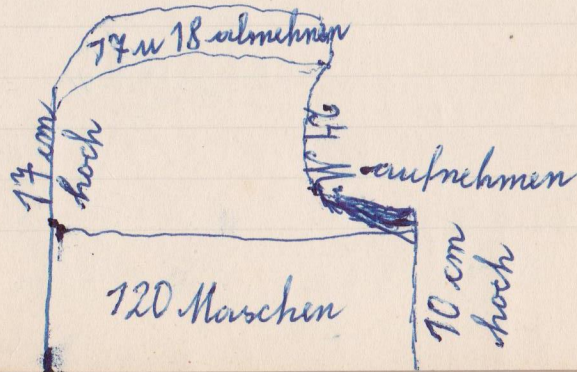 17 u 18 abnehmen
17 cm
hoch
24 M.
aufnehmen
120 Maschen
10 cm
hoch